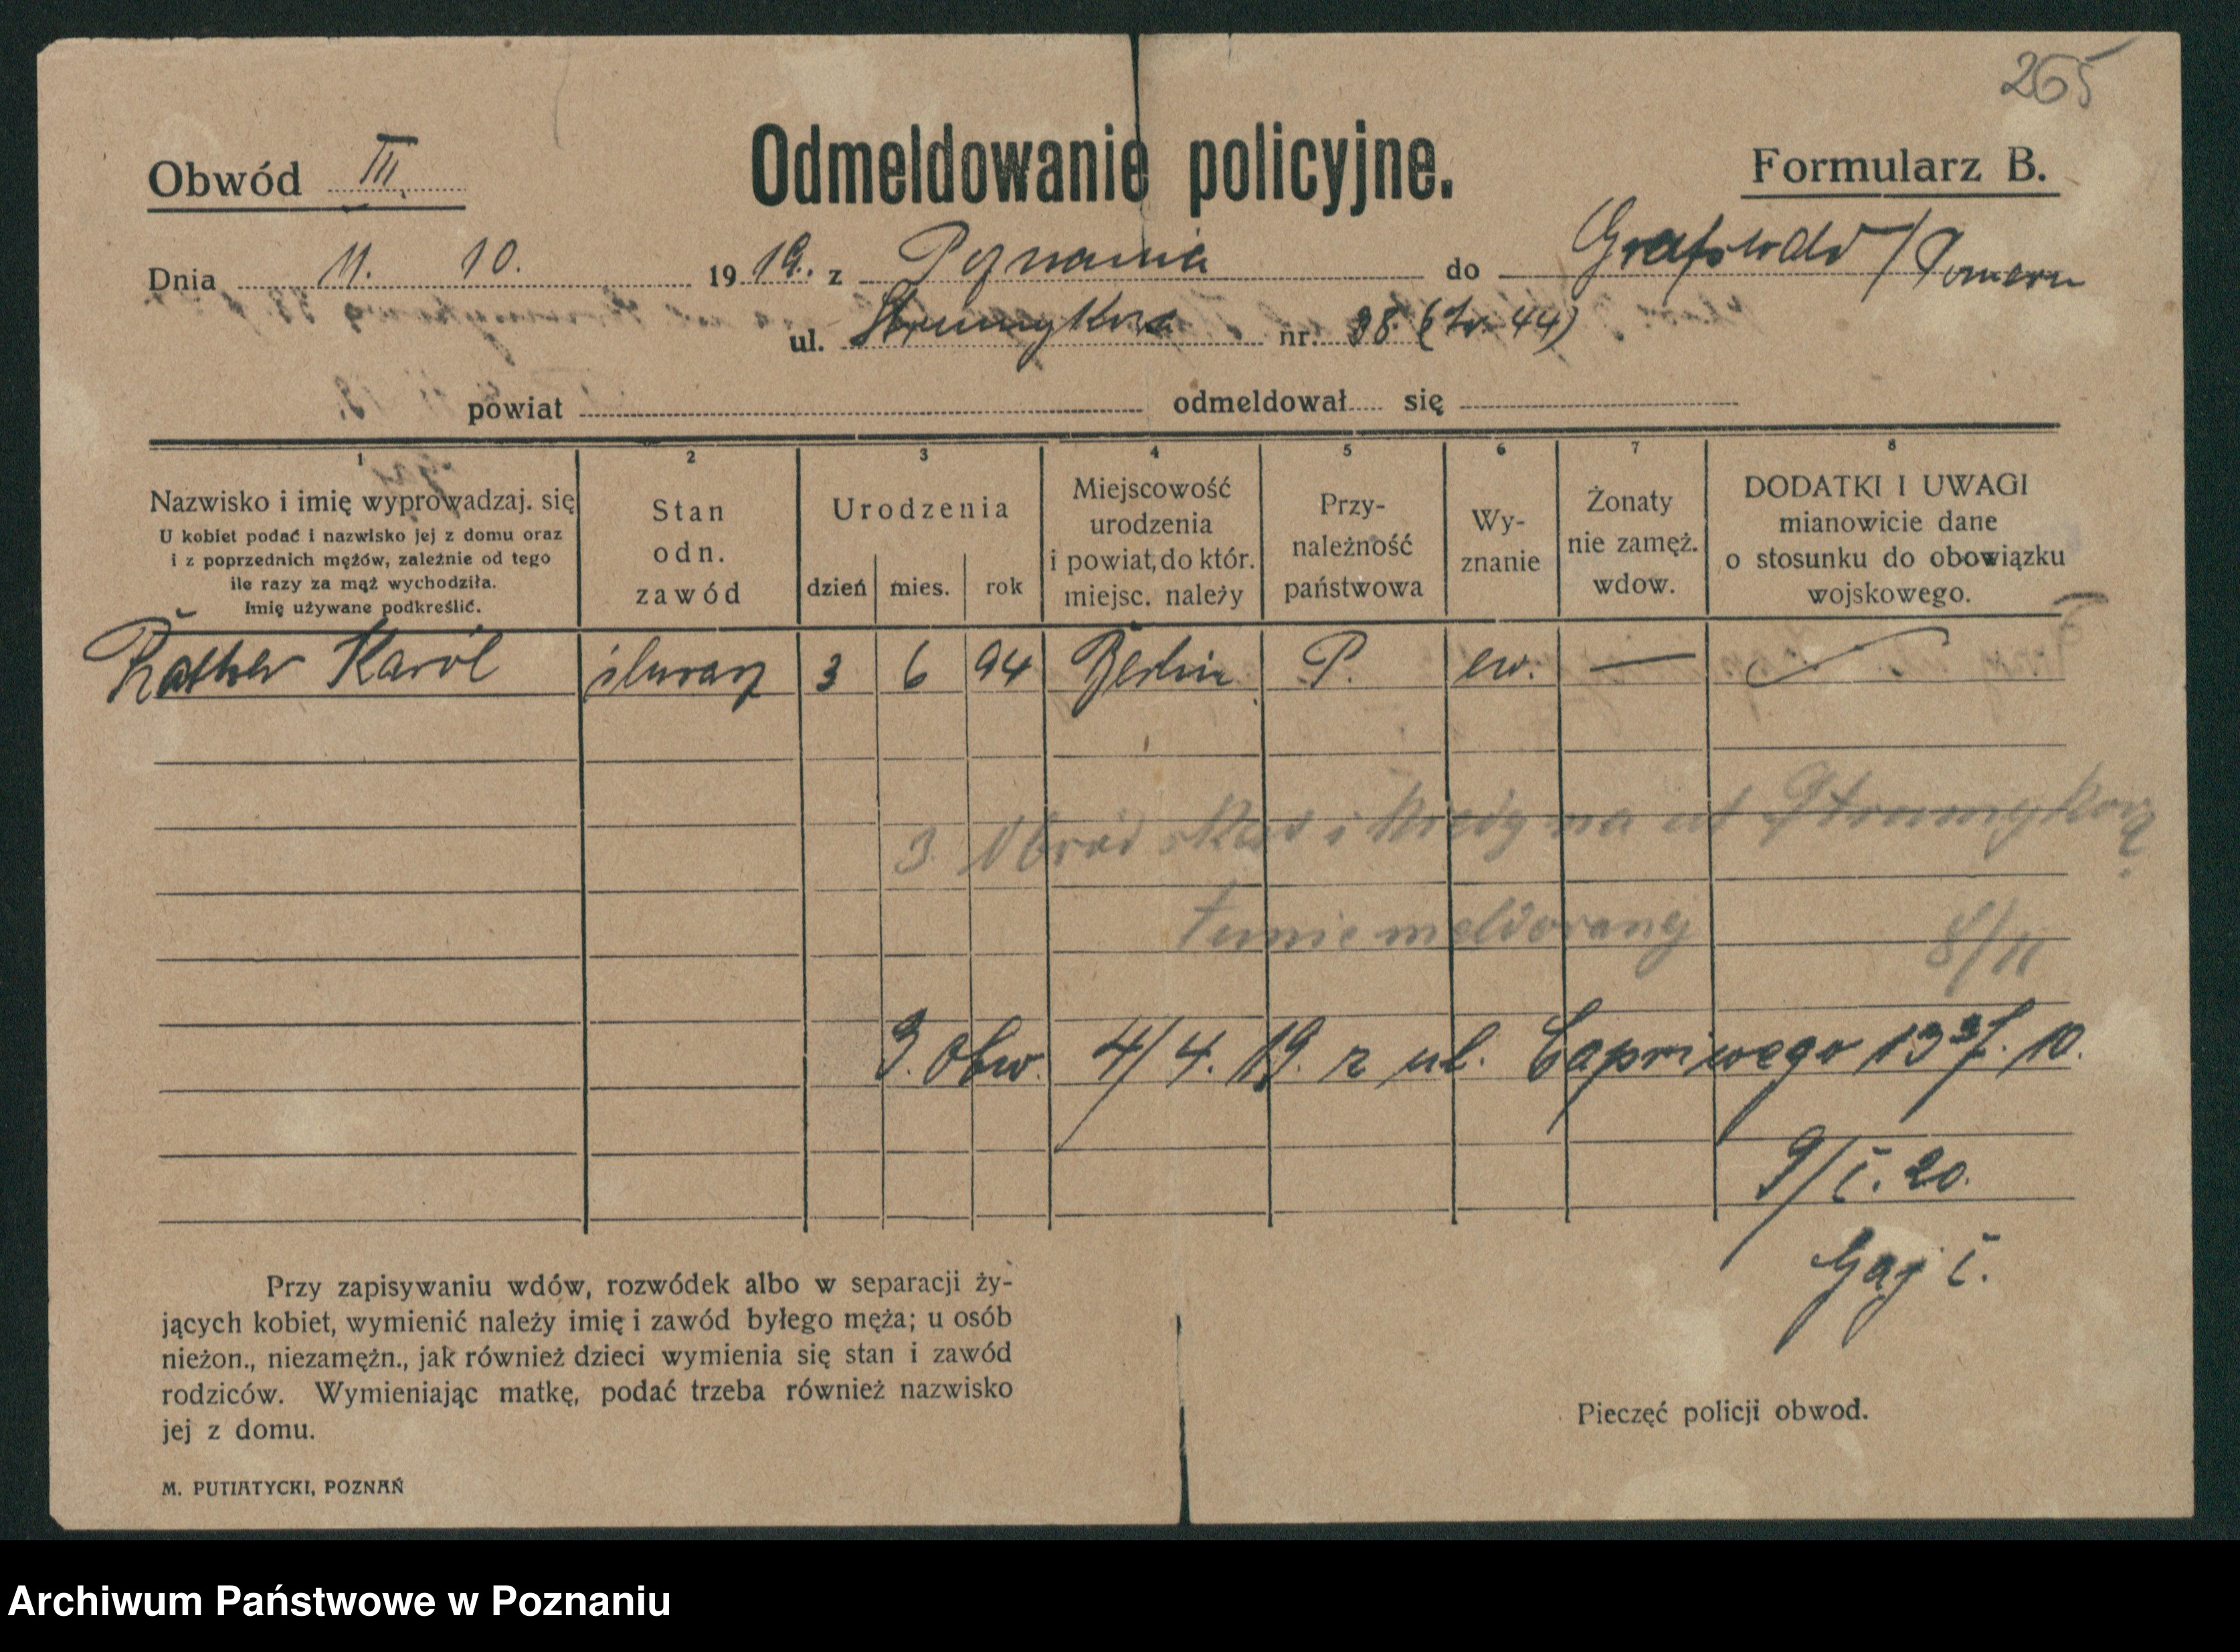 265
Obwód III.
Odmeldowanie policyjne.
Formularz B.
Dnia 11. 10. 1919. z Poznania do Grafswald / Pomern
ul. Strumykowa nr. 38 (tr. 44)
powiat odmeldował się
1 2 3 4 5 6 7 8
Nazwisko i imię wyprowadzaj. się
U kobiet podać i nazwisko jej z domu oraz
i z poprzednich mężów, zależnie od tego
ile razy za mąż wychodziła.
Imię używane podkreślić.
Stan
odn.
zawód
Urodzenia
dzień mies. rok
Miejscowość
urodzenia
i powiat, do któr.
miejsc. należy
Przy-
należność
państwowa
Wy-
znanie
Żonaty
nie zamęż.
wdow.
DODATKI I UWAGI
mianowicie dane
o stosunku do obowiązku
wojskowego.
Rather Karól ślusarz 3 6 94 Berlin P. ew. —
3. Obwód i na ul Strumykową
meldowanej 8/11
3. Obw. 4/4. 19. z ul. Capriwego 13 37. 10.
9/I. 20.
Gaj I.
Przy zapisywaniu wdów, rozwódek albo w separacji ży-
jących kobiet, wymienić należy imię i zawód byłego męża; u osób
nieżon., niezamężn., jak również dzieci wymienia się stan i zawód
rodziców. Wymieniając matkę, podać trzeba również nazwisko
jej z domu.
Pieczęć policji obwod.
M. PUTIATYCKI, POZNAŃ
Archiwum Państwowe w Poznaniu